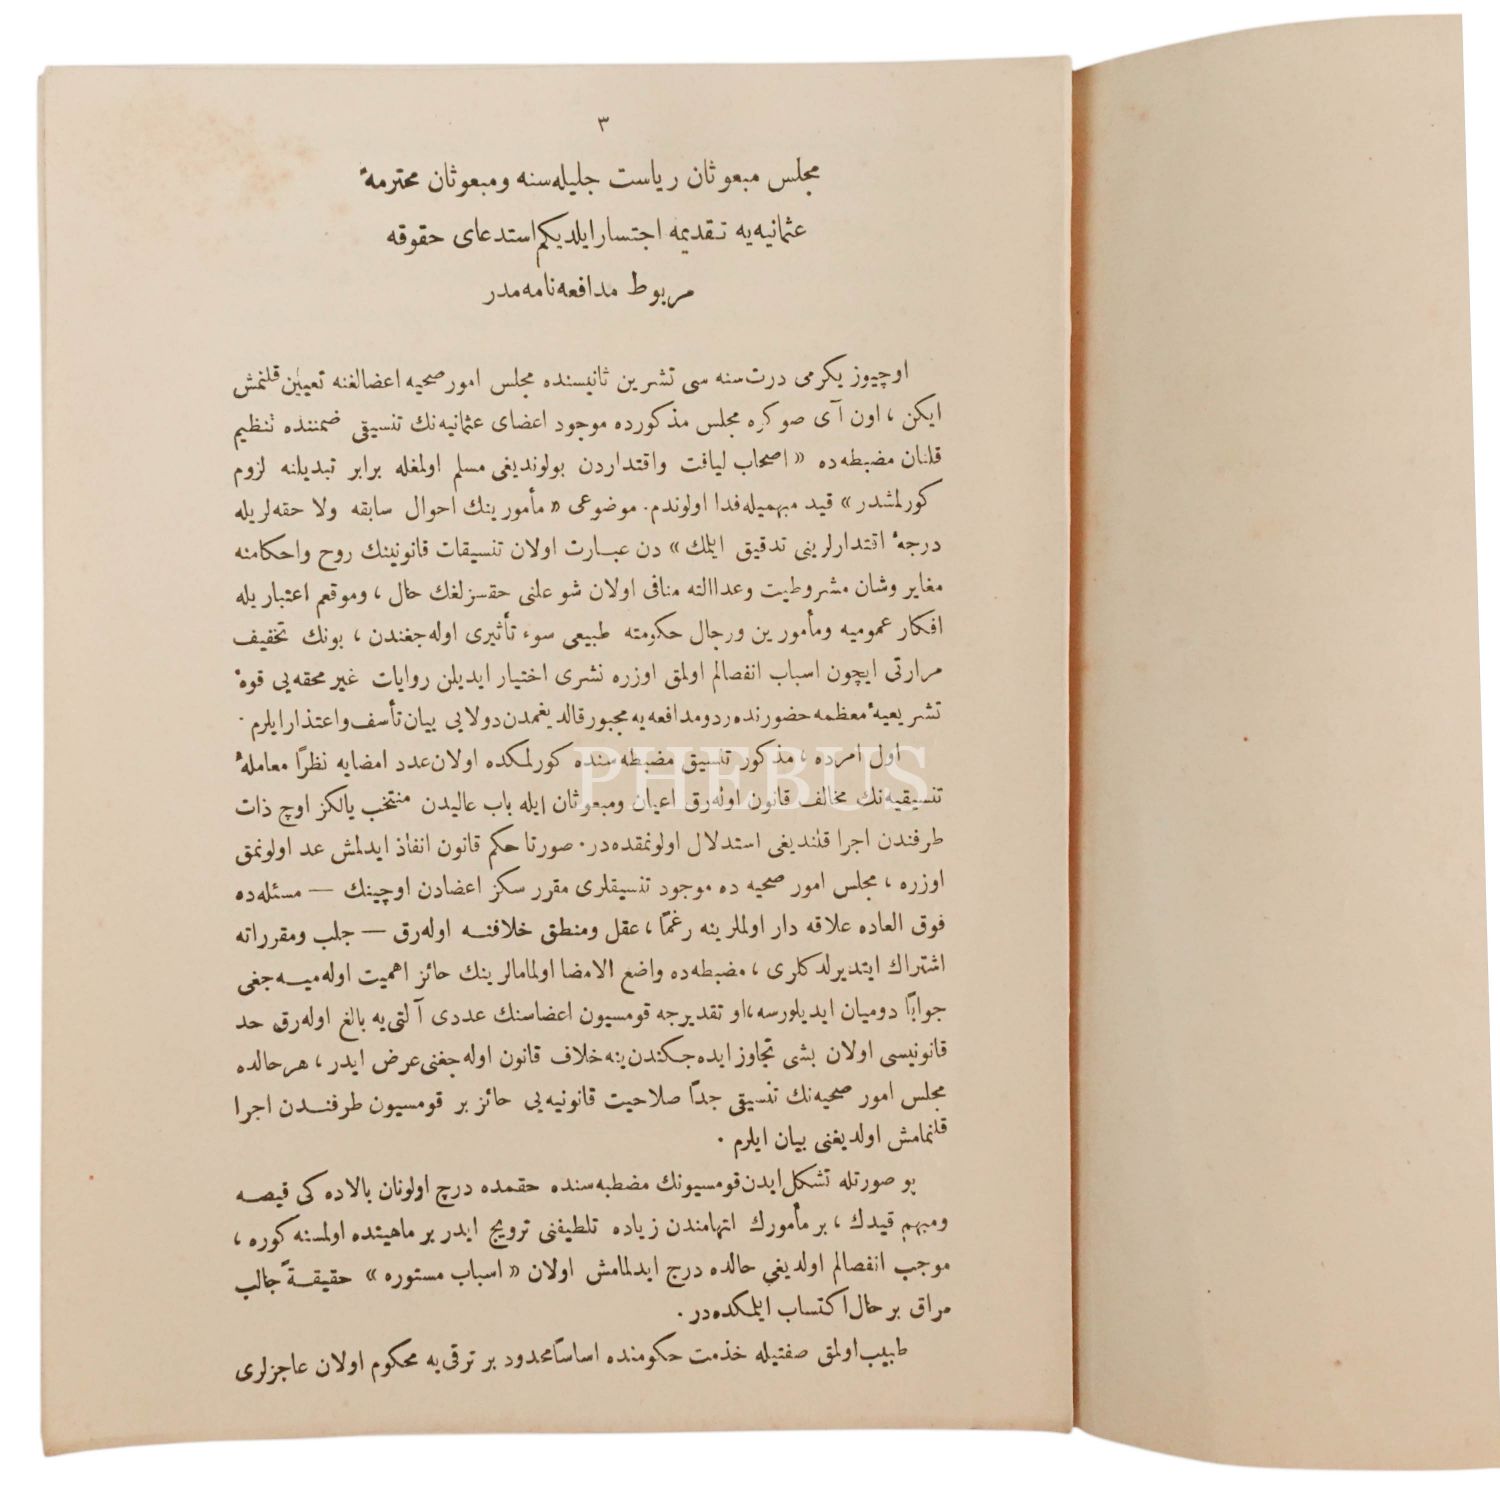 ٣
مجلس مبعوثان ریاست جلیله‌سنه ومبعوثان محترمهٔ
عثمانیه‌یه تقدیمه اجتسار ایلدیكم استدعای حقوقه
مربوط مدافعه‌نامه‌مدر
اوچیوز یكرمی درت سنه سی تشرین ثانیسنده مجلس امور صحیه اعضالغنه تعیین قلنمش
ایكن ، اون آی صوكره مجلس مذكورده موجود اعضای عثمانیه‌نك تنسیقی ضمننده تنظیم
قلنان مضبطه‌ده « اصحاب لیاقت واقتداردن بولوندیغی مسلم اولمغله برابر تبدیلنه لزوم
كورلمشدر » قید مبهمیله فدا اولوندم . موضوعی « مأمورینك احوال سابقه ولاحقه‌لریله
درجهٔ اقتدارلرینی تدقیق ایلمك » دن عبارت اولان تنسیقات قانونینك روح واحكامنه
مغایر وشان مشروطیت وعداالته منافی اولان شو علنی حقسزلغك حال ، وموقعم اعتباریله
افكار عمومیه ومأمورین ورجال حكومته طبیعی سوء تأثیری اوله‌جغندن ، بونك تخفیف
مرارتی ایچون اسباب انفصالم اولمق اوزره نشری اختیار ایدیلن روایات غیر محقه‌یی قوهٔ
تشریعیهٔ معظمه حضورنده رد ومدافعه‌یه مجبور قالدیغمدن دولایی بیان تأسف واعتذار ایلرم .
اول امرده ، مذكور تنسیق مضبطه‌سنده كورلمكده اولان عدد امضایه نظرًا معاملهٔ
تنسیقیه‌نك مخالف قانون اوله‌رق اعیان ومبعوثان ایله باب عالیدن منتخب یالكز اوچ ذات
طرفندن اجرا قلندیغی استدلال اولونمقده‌در . صورتا حكم قانون انفاذ ایدلمش عد اولونمق
اوزره ، مجلس امور صحیه ده موجود تنسیقلری مقرر سكز اعضادن اوچینك — مسئله‌ده
فوق العاده علاقه دار اولملرینه رغمًا ، عقل ومنطق خلافنه اوله‌رق — جلب ومقرراته
اشتراك ایتدیرلدكلری ، مضبطه‌ده واضع الامضا اولمامالرینك حائز اهمیت اوله‌میه‌جغی
جوابًا دومیان ایدیلورسه ، او تقدیرجه قومسیون اعضاسنك عددی آلتی‌یه بالغ اوله‌رق حد
قانونیسی اولان بشی تجاوز ایده‌جكندن ینه خلاف قانون اوله‌جغنی عرض ایدر ، هر حالده
مجلس امور صحیه‌نك تنسیقی جدًا صلاحیت قانونیه‌یی حائز بر قومسیون طرفندن اجرا
قلنمامش اولدیغنی بیان ایلرم .
بو صورتله تشكل ایدن قومسیونك مضبطه‌سنده حقمده درج اولونان بالاده كی قیصه
ومبهم قیدك ، بر مأمورك اتهامندن زیاده تلطیفنی ترویج ایدر بر ماهیتده اولمسنه كوره ،
موجب انفصالم اولدیغی حالده درج ایدلمامش اولان « اسباب مستوره » حقیقةً جالب
مراق بر حال اكتساب ایلمكده‌در .
طبیب اولمق صفتیله خذمت حكومنده اساسًا محدود بر ترقی‌یه محكوم اولان عاجزلری
PHEBUS